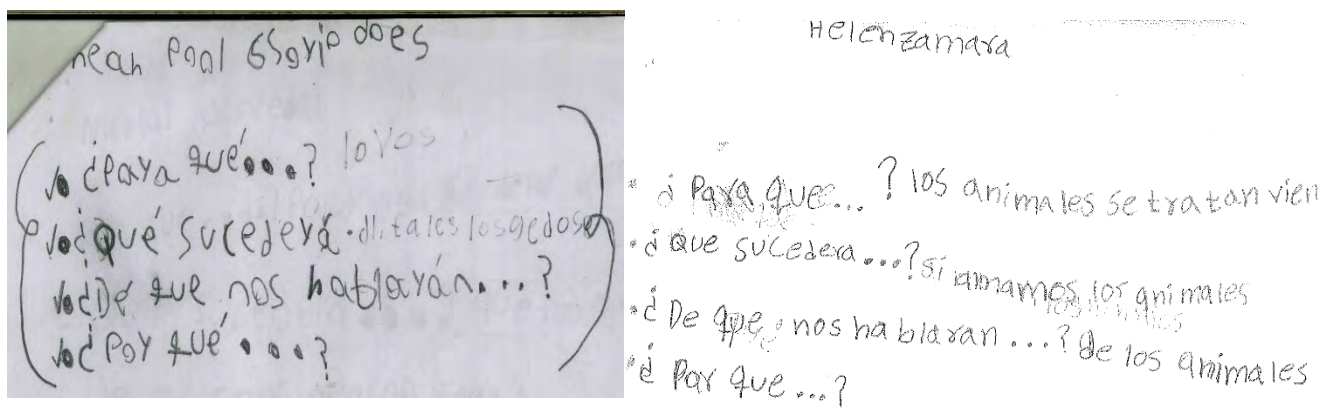 does
¿Para qué...? lovos
¿Qué sucederá
¿Dé que nos hablarán...?
¿Por qué...?
Helenzamara
• ¿Para que...? los animales se tratan vien
• ¿Que sucedera...? si anmamos los animales
• ¿De que nos hablaran...? de los animales
• ¿Par que...?